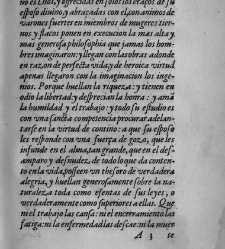 no celestial, y ofrecidas en solos los braços de su
esposo diuino, y abrazadas con el con animos de
varones fuertes en miembros de mugeres tier-
nos y flacos ponen en execucion la mas alta y
mas generosa philosophia que jamas los hom-
bres imaginaron: y llegan con las obras adonde
en razon de perfecta vida, y de heroica virtud
apenas llegaron con la imaginacion los inge-
nios. Porque huellan la riqueza: y tienen en
odio la libertad, y desprecian la honra: y amã
la humildad y el trabajo: y todo su estudio es
con vna sancta competencia procurar adelan-
tarse en la virtud de contino: a que su esposo
les responde con vna fuerça de gozo, que les
infunde en el alma, tan grande, que en el des-
amparo y desnudez, de todo lo que da conten-
to en la vida, posseen vn thesoro de verdadera
alegria, y huellan generosamente sobre la na-
turaleza toda como esentas de sus leyes, o
verdaderamente como superiores a ellas. Que
ni el trabajo las cansa: ni el encerramiento las
fatiga: ni la enfermedad las descae: ni la muer
A 3 te